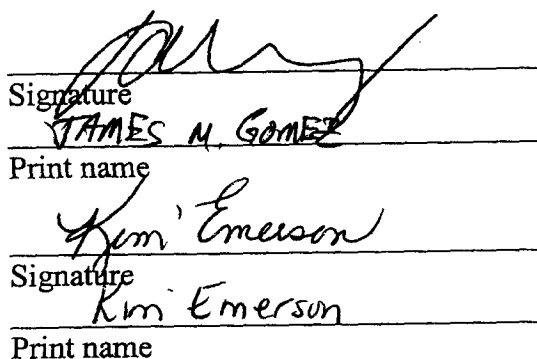 Signature
JAMES M. GOMEZ
Print name
Kim Emerson
Signature
Kim Emerson
Print name